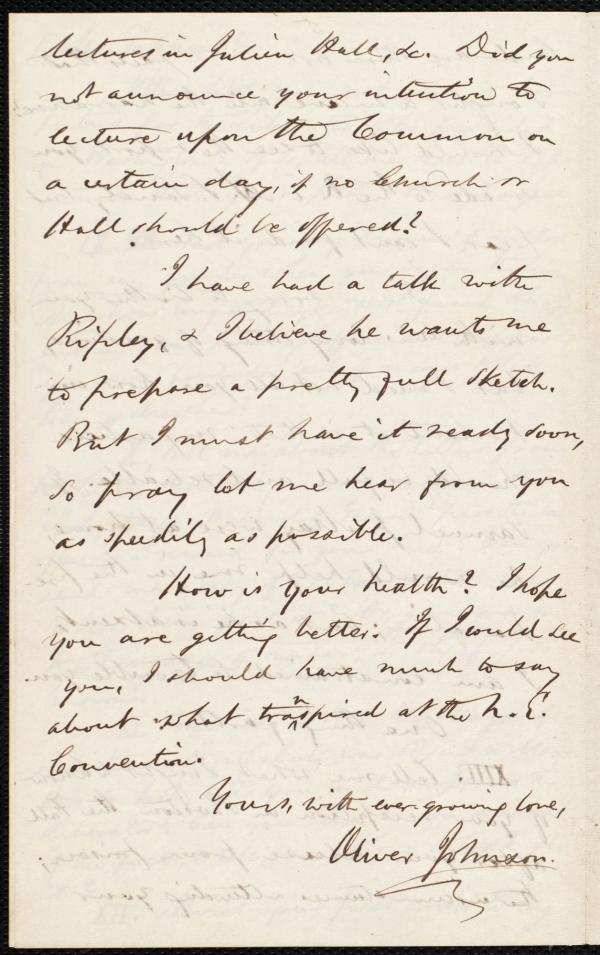 lectures in Julien Hall, &c. Did you
not announce your intention to
lecture upon the Common on
a certain day, if no Church or
Hall should be offered?
I have had a talk with
Ripley, & I believe he wants me
to prepare a pretty full sketch.
But I must have it ready soon,
so pray let me hear from you
as speedily as possible.
How is your health? I hope
you are getting better. If I could see
you, I should have much to say
about what transpired at the N. E.
Convention.
Yours, with ever-growing love,
Oliver Johnson.